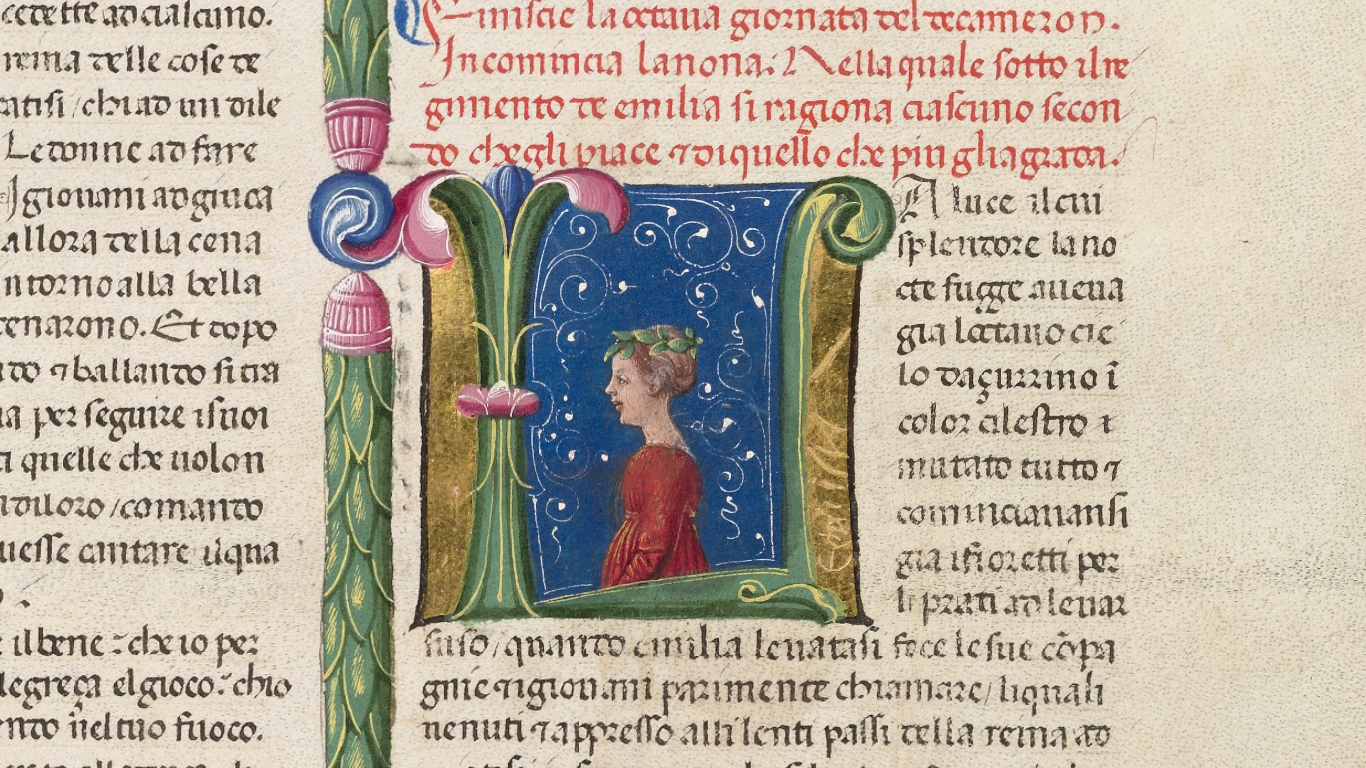 cedette ad ciascuno.
reina delle cose de
ratisi / chi ad un dile
Le donne ad fare
I giovani ad giuca
allora della cena
intorno alla bella
cenarono. Et dopo
⁊ ballando si
per seguire i suoi
quelle che uolon
di loro / comando
uesse cantare il qua
il bene : che io per
legreça el gioco : chio
ñel tuo fuoco.
Finisce la octaua giornata del decameron.
Incomincia la nona. Nella quale sotto il re
gimento de emilia si ragiona ciascuno secon
do che gli piace ⁊ di quello che piu gli agrada.
A luce il cui
splendore la no
cte fugge aueua
gia loctauo cie
lo daçurrino ĩ
color cilestro
mutato tutto ⁊
cominciauansi
gia i fioretti per
li prati ad leuar
suso / quando emilia leuatasi fece le sue cõpa
gnie ⁊ i giouani parimente chiamare / li quali
uenuti ⁊ appresso alli lenti passi della reina ad